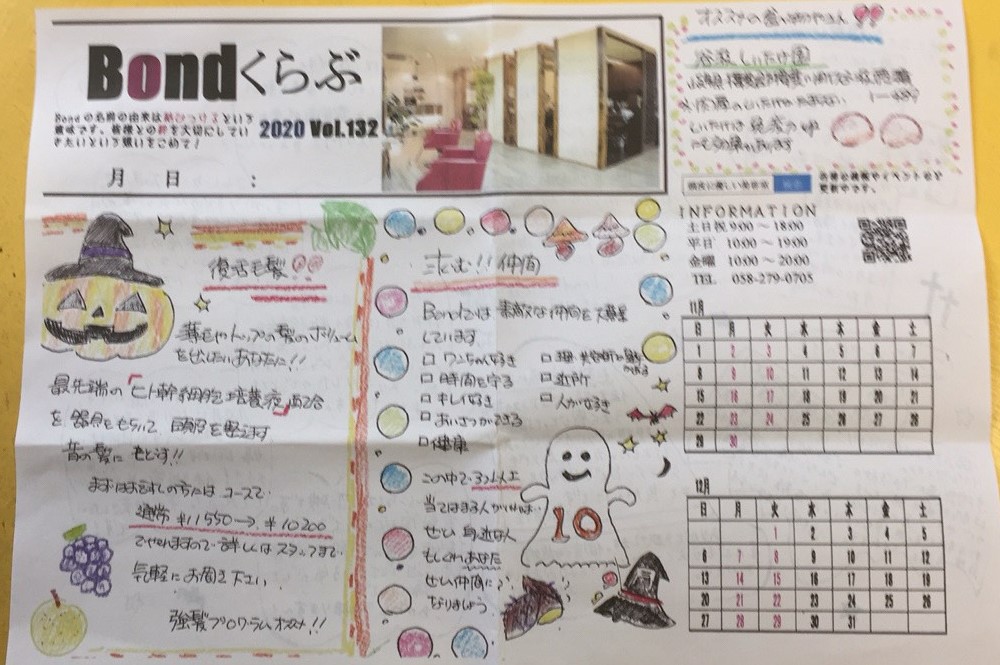 Bondくらぶ
Bondの名前の由来は結びつけるという
意味です。皆様との絆を大切にしてい
きたいという想いをこめて！
2020 Vol.132
月 日 :
谷汲しいたけ園
頭皮に優しい美容室 検索
お得な情報やイベントなど
更新中です。
INFORMATION
土日祝 9:00 ～ 18:00
平日 10:00 ～ 19:00
金曜 10:00 ～ 20:00
TEL 058-279-0705
復活毛髪!!
薄毛やトップの髪のボリューム
を出したいあなたに!!
最先端の「ヒト幹細胞培養液」配合
を 頭皮を整えます
昔の髪に もどす!!
コースで
通常 ¥11550→ ¥10200
でやれますので 詳しくはスタッフまで
気軽にお聞き下さい
強髪プログラムオススメ!!
求む!! 仲間
Bondでは 素敵な仲間を大募集
しています
□ ワンちゃん好き
□ 時間を守る
□ キレイ好き
□ あいさつができる
□ 健康
□ 近所
□ 人が好き
この中で 3つ以上
当てはまる人がいれば…
ぜひ 身近な人
もしくは あなた
ぜひ仲間に
なりましょう
10
11月
日 月 火 水 木 金 土
1 2 3 4 5 6 7
8 9 10 11 12 13 14
15 16 17 18 19 20 21
22 23 24 25 26 27 28
29 30
12月
日 月 火 水 木 金 土
1 2 3 4 5
6 7 8 9 10 11 12
13 14 15 16 17 18 19
20 21 22 23 24 25 26
27 28 29 30 31